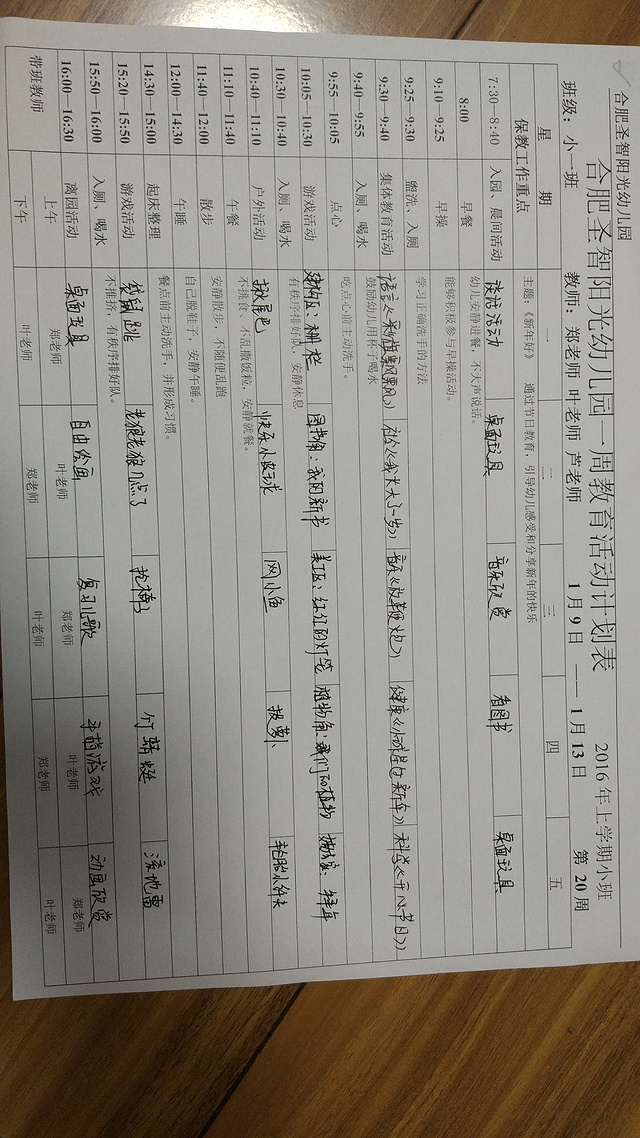 合肥圣智阳光幼儿园
合肥圣智阳光幼儿园一周教育活动计划表
2016年上学期小班
班级：小一班 教师：郑老师 叶老师 芦老师 1月9日——1月13日 第20周
星期 一 二 三 四 五
保教工作重点 主题：《新年好》 通过节日教育，引导幼儿感受和分享新年的快乐
7:30—8:40 入园、晨间活动 谈话活动 桌面玩具 音乐欣赏 看图书 桌面玩具
8:00 早餐 幼儿安静进餐，不大声说话。
9:10—9:25 早操 能够积极参与早操活动。
9:25—9:30 盥洗、入厕 学习正确洗手的方法
9:30—9:40 集体教育活动 语言 社会《我长大了一岁》 音乐《放鞭炮》 健康 科学
9:40—9:55 入厕、喝水 鼓励幼儿用杯子喝水
9:55—10:05 点心 吃点心前主动洗手。
10:05—10:30 游戏活动 建构区：栅栏 图书角：我的新书 美工区：红红的灯笼 植物角：我们的植物
10:30—10:40 入厕、喝水 有秩序排好队，安静休息
10:40—11:10 户外活动 揪尾巴 快乐小皮球 网小鱼 拔萝卜
11:10—11:40 午餐 不挑食、不乱撒饭粒，安静就餐。
11:40—12:00 散步 安静散步，不随便乱跑
12:00—14:30 午睡 自己脱鞋子，安静午睡。
14:30—15:00 起床整理 餐点前主动洗手，并形成习惯。
15:20—15:50 游戏活动 袋鼠跳 老狼老狼几点了 竹蜻蜓 滚地雷
15:50—16:00 入厕、喝水 不推挤，有秩序排好队。
16:00—16:30 离园活动 桌面玩具 自由绘画 复习儿歌 手指游戏 动画欣赏
带班教师 上午 郑老师 叶老师 郑老师 叶老师 郑老师
下午 叶老师 郑老师 叶老师 郑老师 叶老师